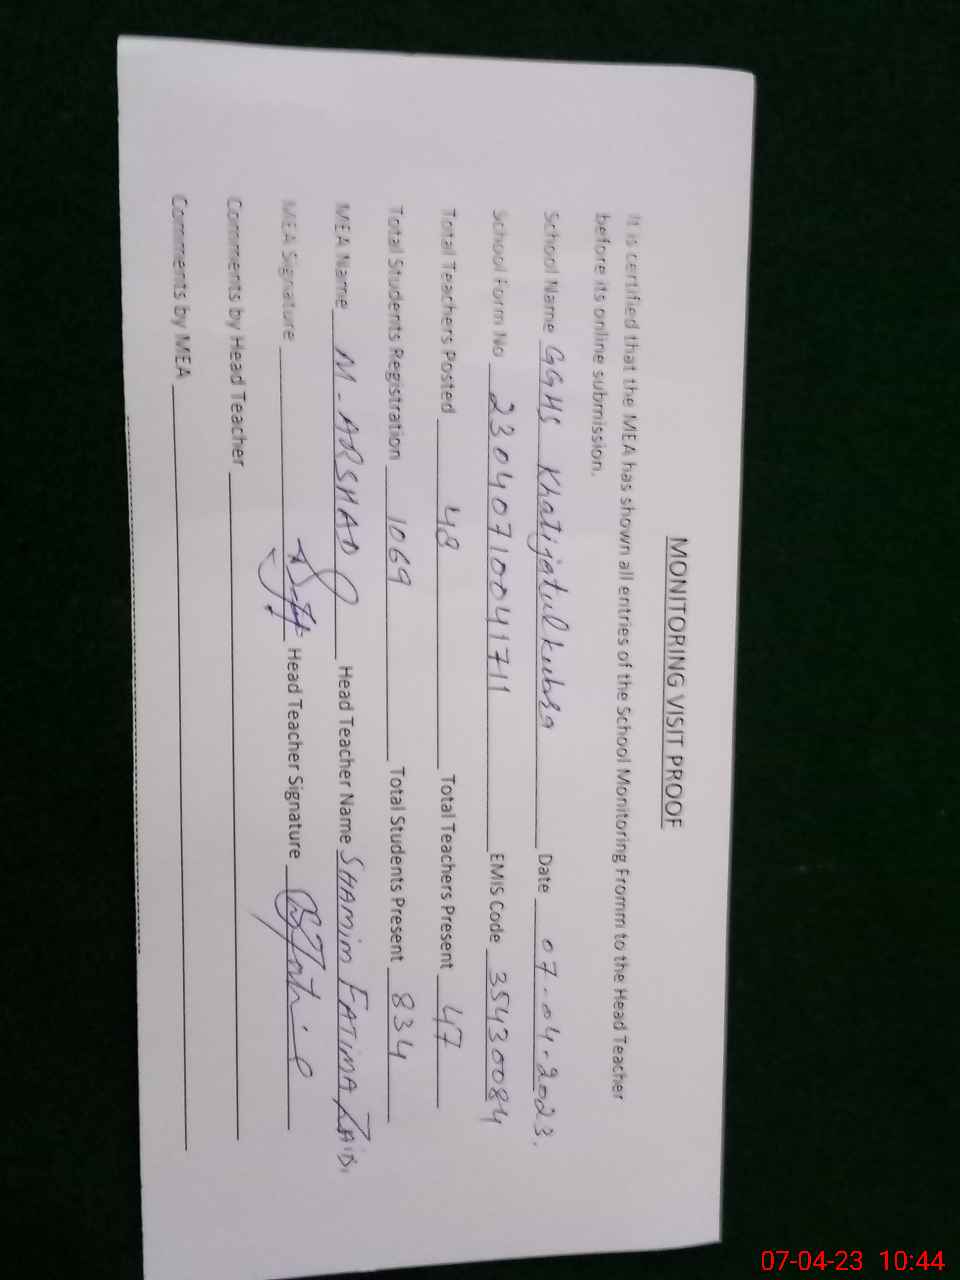 MONITORING VISIT PROOF
It is certified that the MEA has shown all entries of the School Monitoring Fromm to the Head Teacher
before its online submission.
School Name GGHS Khatijatul kubra Date 07-04-2023.
School Form No 23040710041711 EMIS Code 35430084
Total Teachers Posted 48 Total Teachers Present 47
Total Students Registration 1069 Total Students Present 834
MEA Name M-ARSHAD Head Teacher Name SHAMIM FATIMA ZAIDI
MEA Signature Head Teacher Signature
Comments by Head Teacher
Comments by MEA
07-04-23 10:44